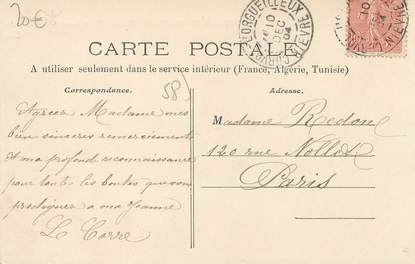 20€
CORVOL-L'ORGUEILLEUX
10
DEC
04
NIEVRE
CARTE POSTALE
A utiliser seulement dans le service intérieur (France, Algérie, Tunisie)
Correspondance.
58
Adresse.
Agréez Madame mes
bien sincères remerciements
et ma profond reconnaissance
pour toute les bontés que vous
prodiguez a ma Jeanne
Le Corre
Madame Redon
120 rue Nollet
Paris